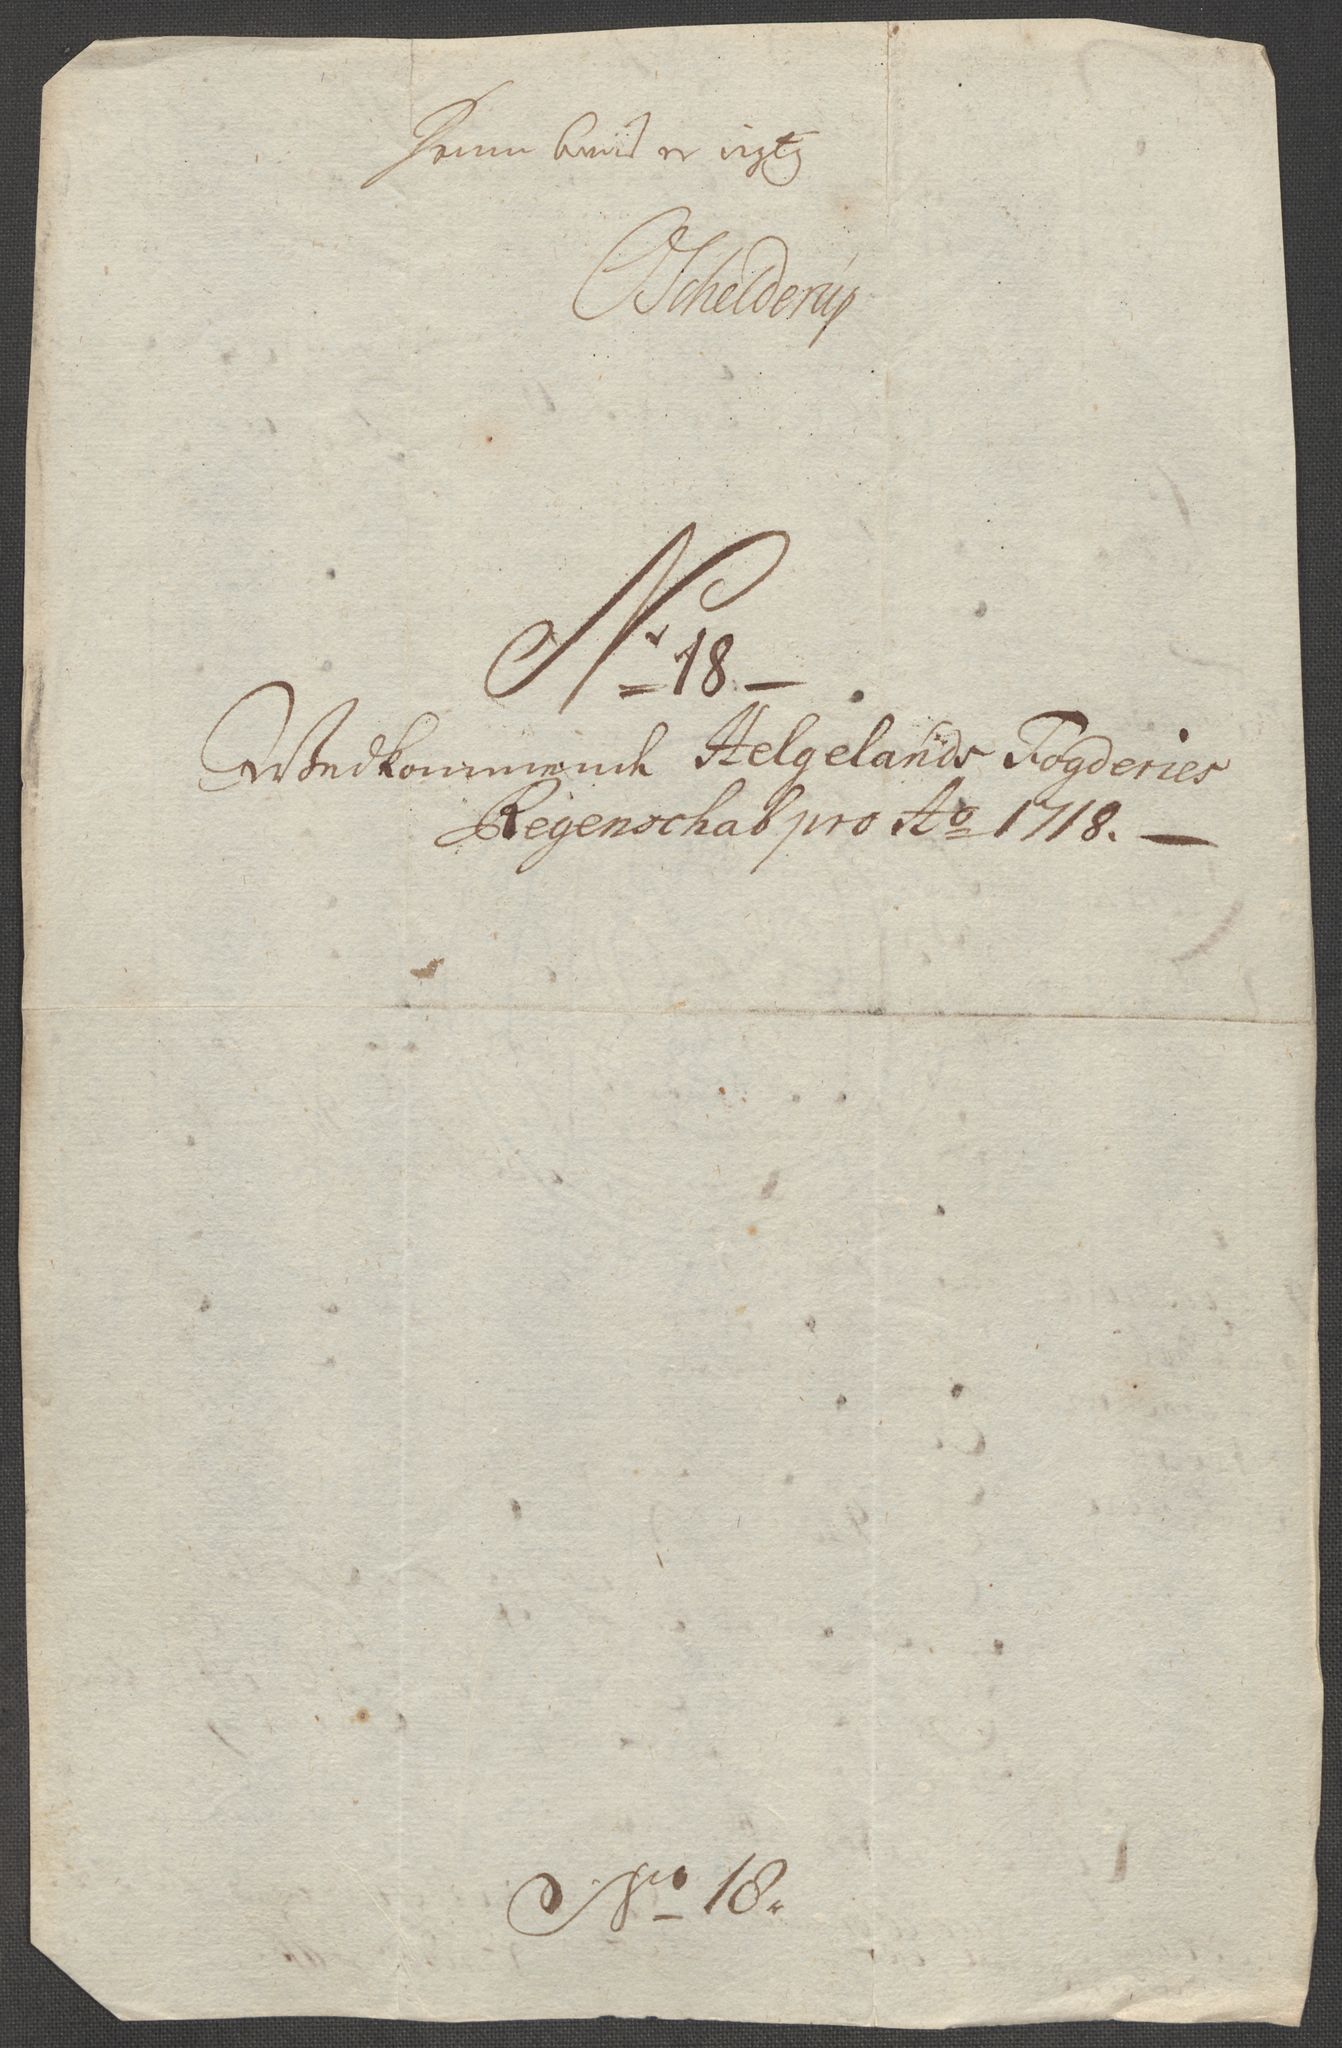 er rigtig
OSchelderup
No 18
Vedkommende Helgelands Fogderies
Regenschab pro Ao 1718.
No 18.